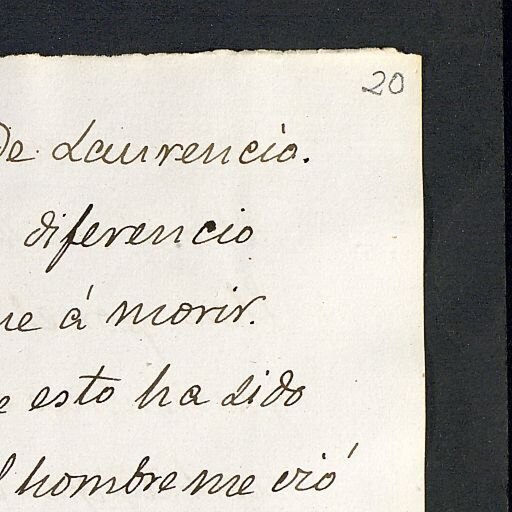 20
de Laurencio.
diferencio
me á morir.
e esto ha sido
l hombre me vió